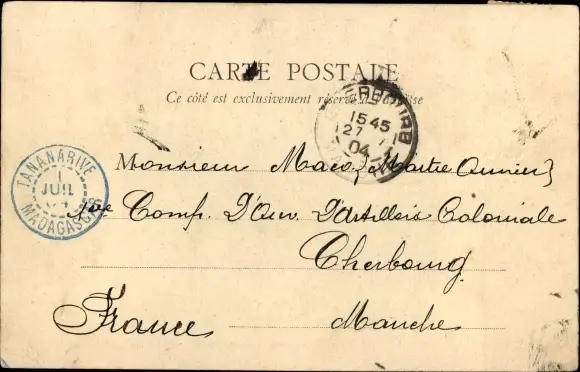 CARTE POSTALE
Ce côté est exclusivement réservé à l'adresse
CHERBOURG
15 45
27
04
TANANARIVE
1
JUIL
04
MADAGASCAR
Monsieur Maco, (Maître Ouvrier)
Comp. D'Ouv. D'Artillerie Coloniale
Cherbourg
France Manche